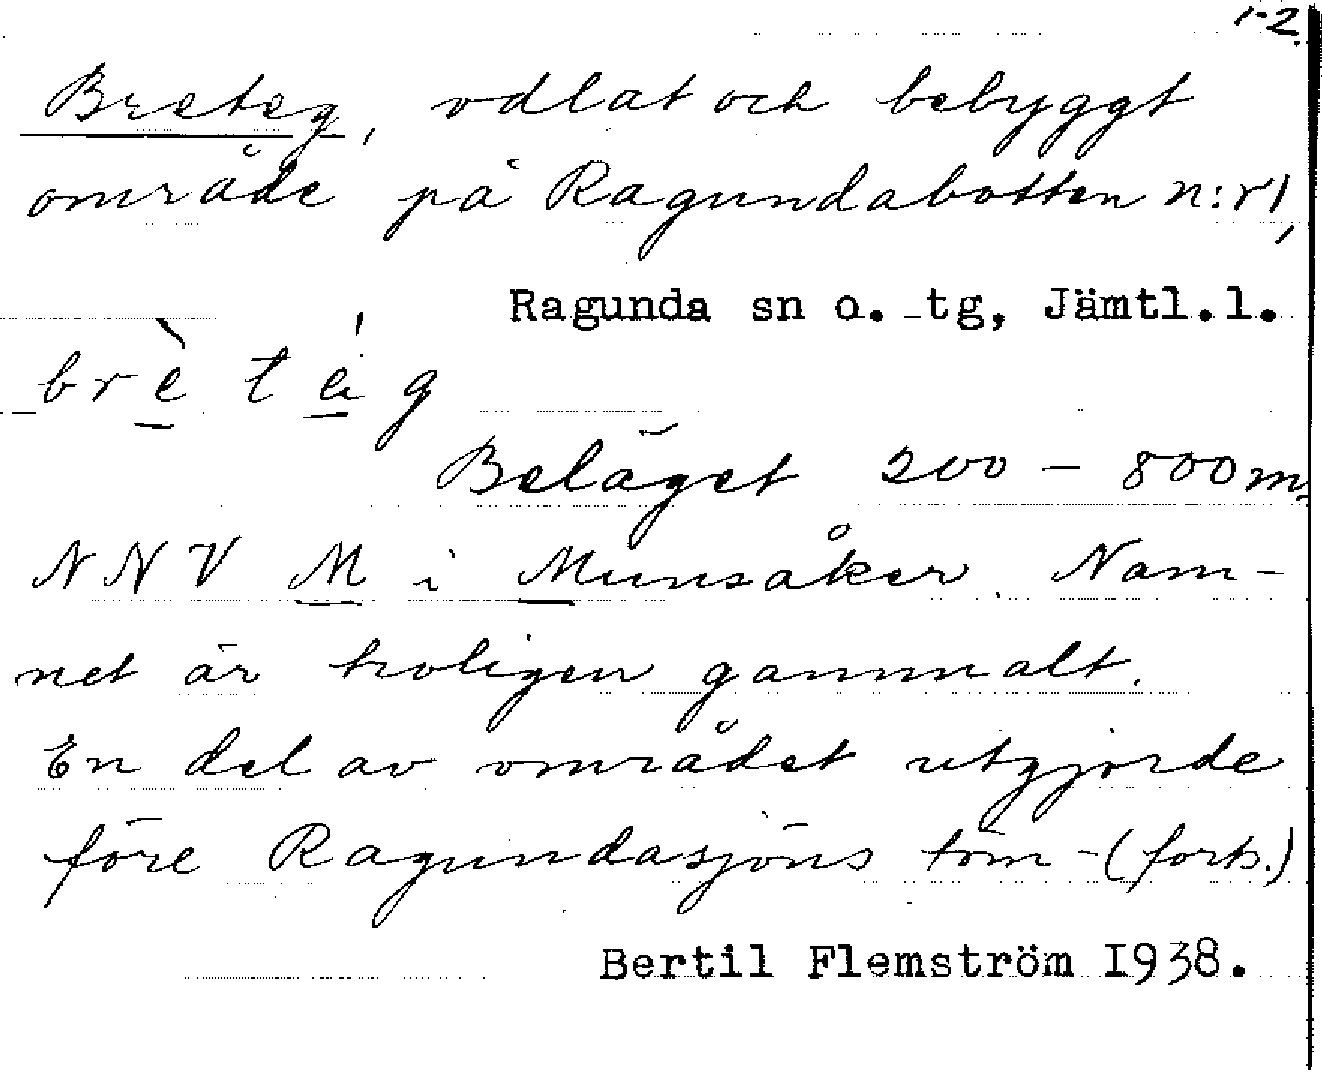 1-2.
Breteg, odlat och bebyggt
område på Ragundabotten n:r 1,
Ragunda sn o. tg, Jämtl.l.
brè téi g
Beläget 200 – 800 m.
NNV M i Munsåker. Nam-
net är troligen gammalt.
En del av området utgjorde
före Ragundasjöns töm- (forts.)
Bertil Flemström 1938.